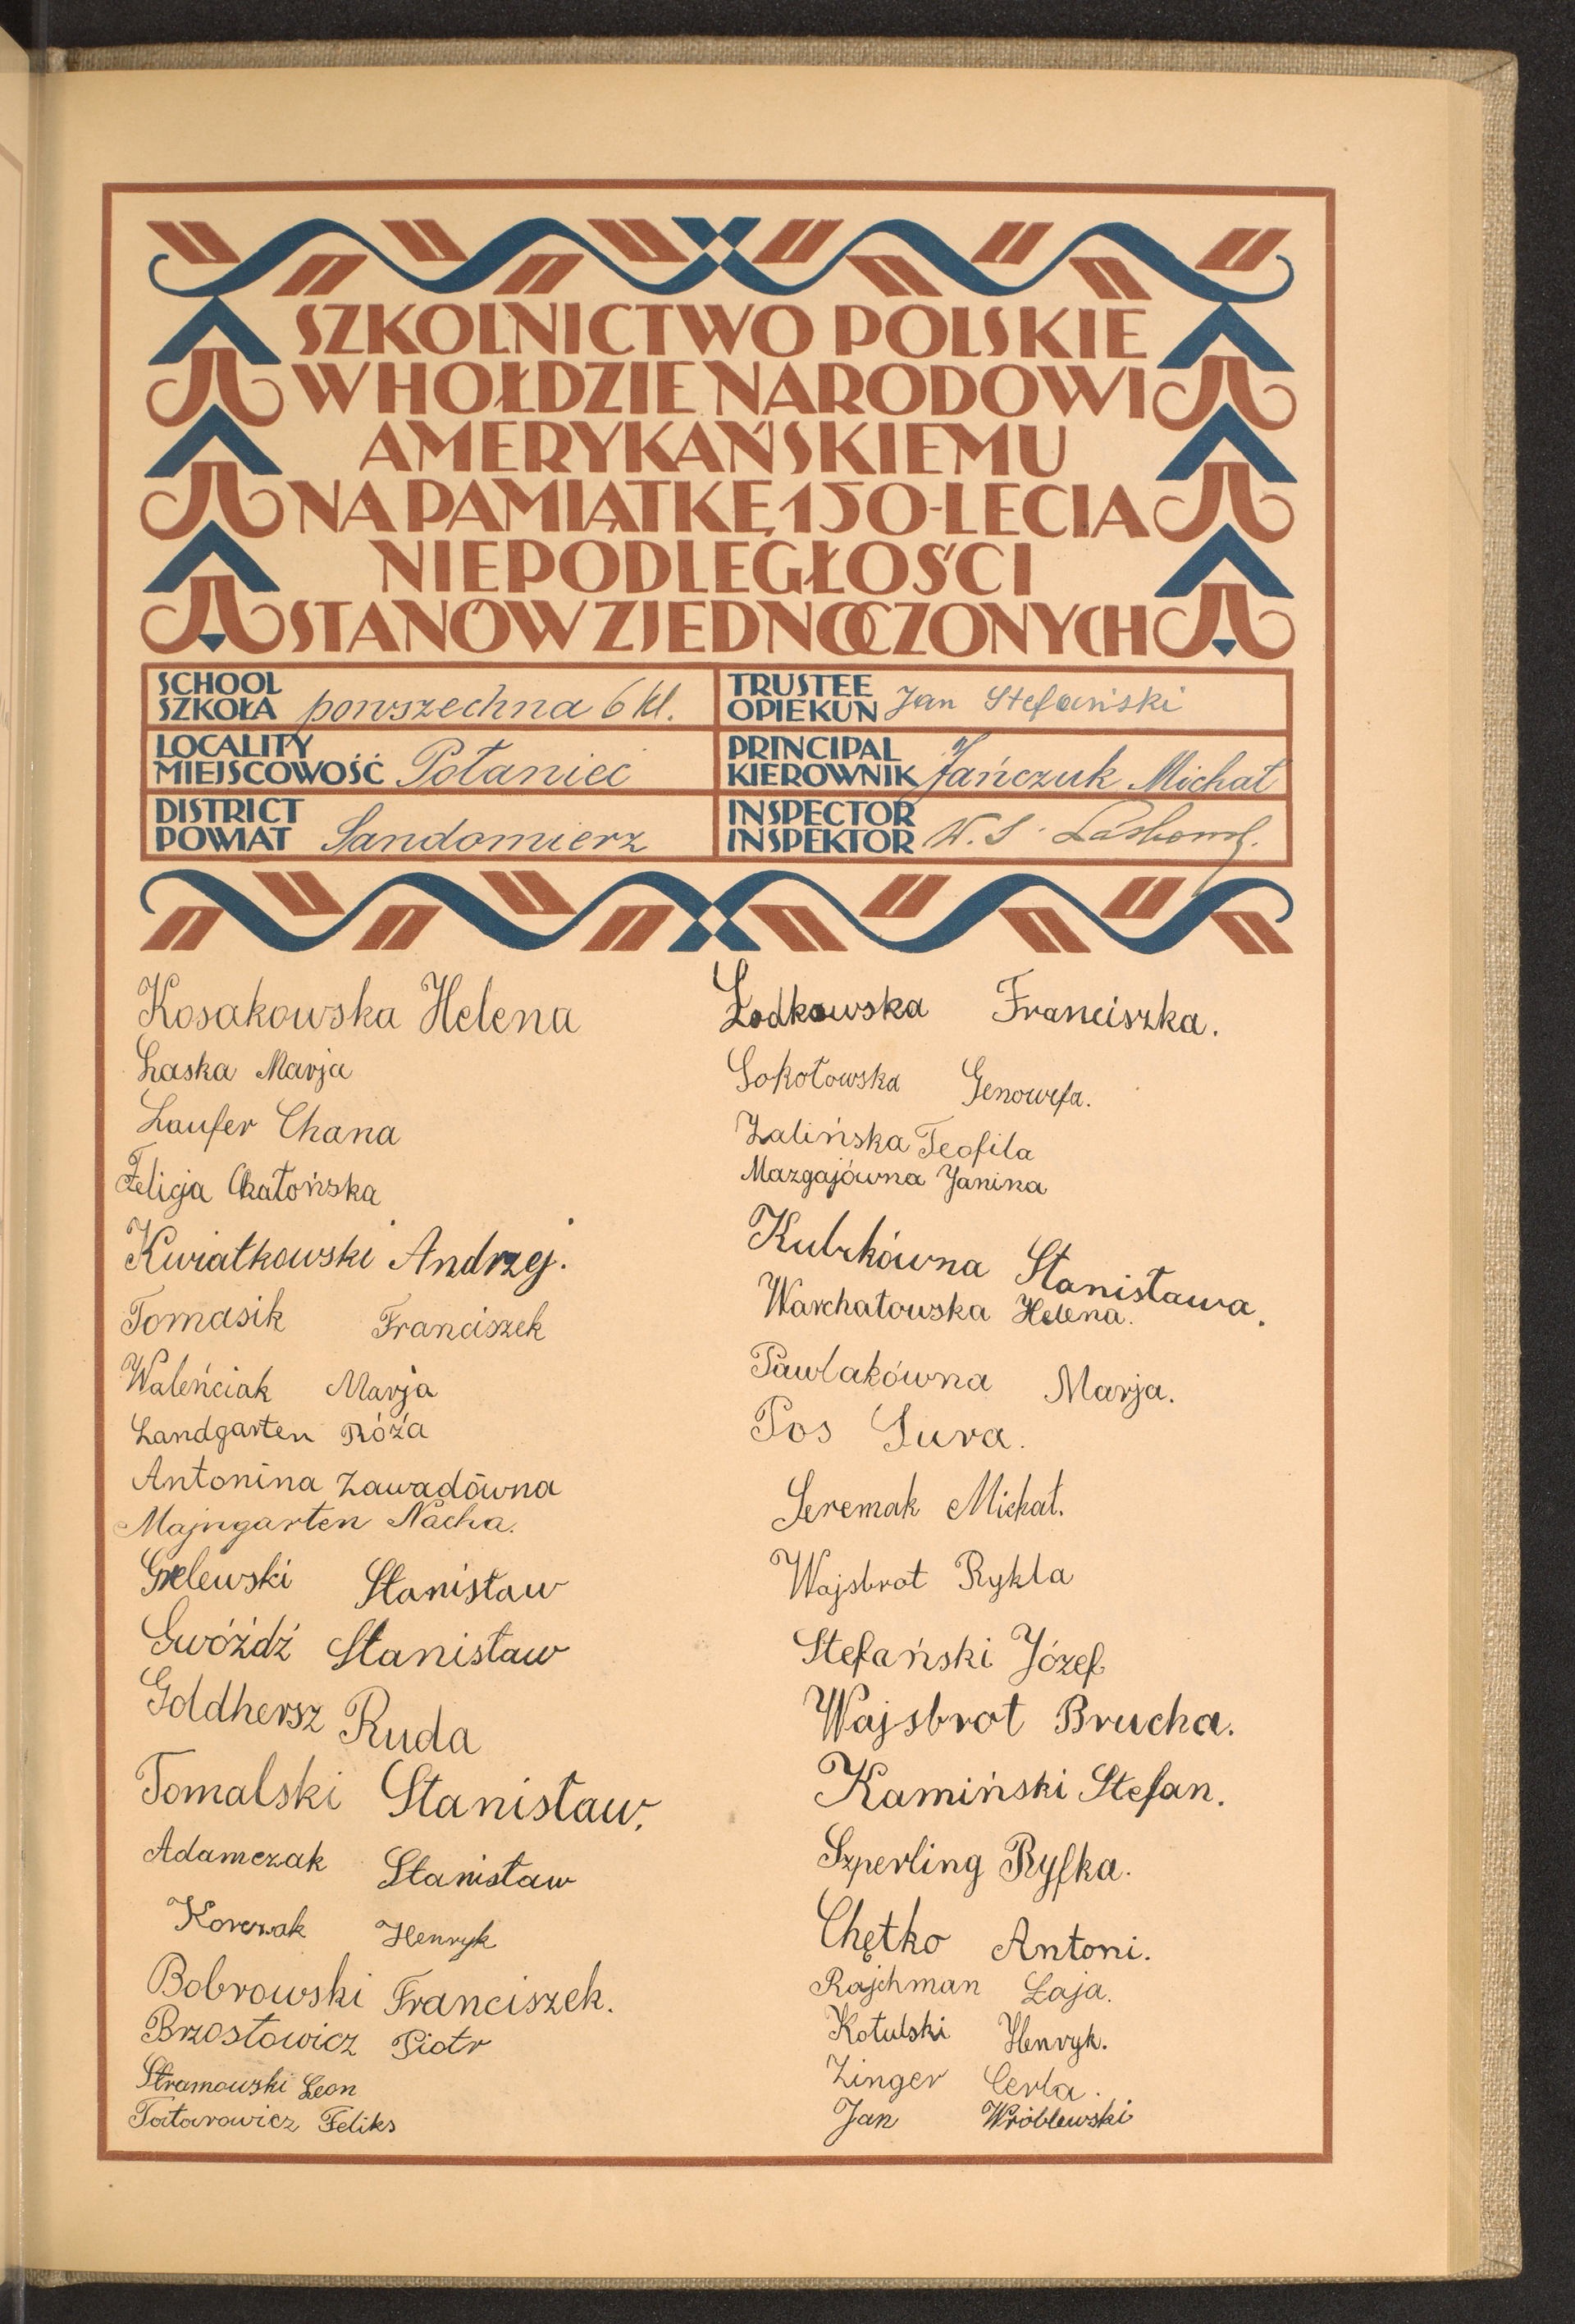 SZKOLNICTWO POLSKIE
W HOŁDZIE NARODOWI
AMERYKAŃSKIEMU
NA PAMIĄTKĘ 150-LECIA
NIEPODLEGŁOŚCI
STANÓW ZJEDNOCZONYCH
SCHOOL
SZKOŁA powszechna 6 kl.
TRUSTEE
OPIEKUN Jan Stefański
LOCALITY
MIEJSCOWOŚĆ Połaniec
PRINCIPAL
KIEROWNIK Jańczuk Michał
DISTRICT
POWIAT Sandomierz
INSPECTOR
INSPEKTOR W. S.
Kosakowska Helena
Łaska Marja
Laufer Chana
Felicja
Kwiatkowski Andrzej.
Tomasik Franciszek
Waleńciak Marja
Landgarten Róźa
Antonina Zawadówna
Majngarten Nacha.
Grelewski Stanisław
Gwóźdź Stanisław
Goldhersz Ruda
Tomalski Stanisław.
Adamczak Stanisław
Korczak Henryk
Bobrowski Franciszek.
Brzostowicz Piotr
Stramowski Leon
Tatarowicz Feliks
Łodkowska Franciszka.
Sokołowska Genowefa.
Zalińska Teofila
Mazgajówna Janina
Kubzkówna Stanisława.
Warchałowska Helena.
Pawlakówna Marja.
Pos Sura.
Seremak Michał.
Wajsbrot Rykla
Stefański Józef
Wajsbrot Brucha.
Kamiński Stefan.
Szperling Ryfka.
Chętko Antoni.
Rajchman Łaja.
Kotulski Henryk.
Zinger Cerla.
Jan Wróblewski